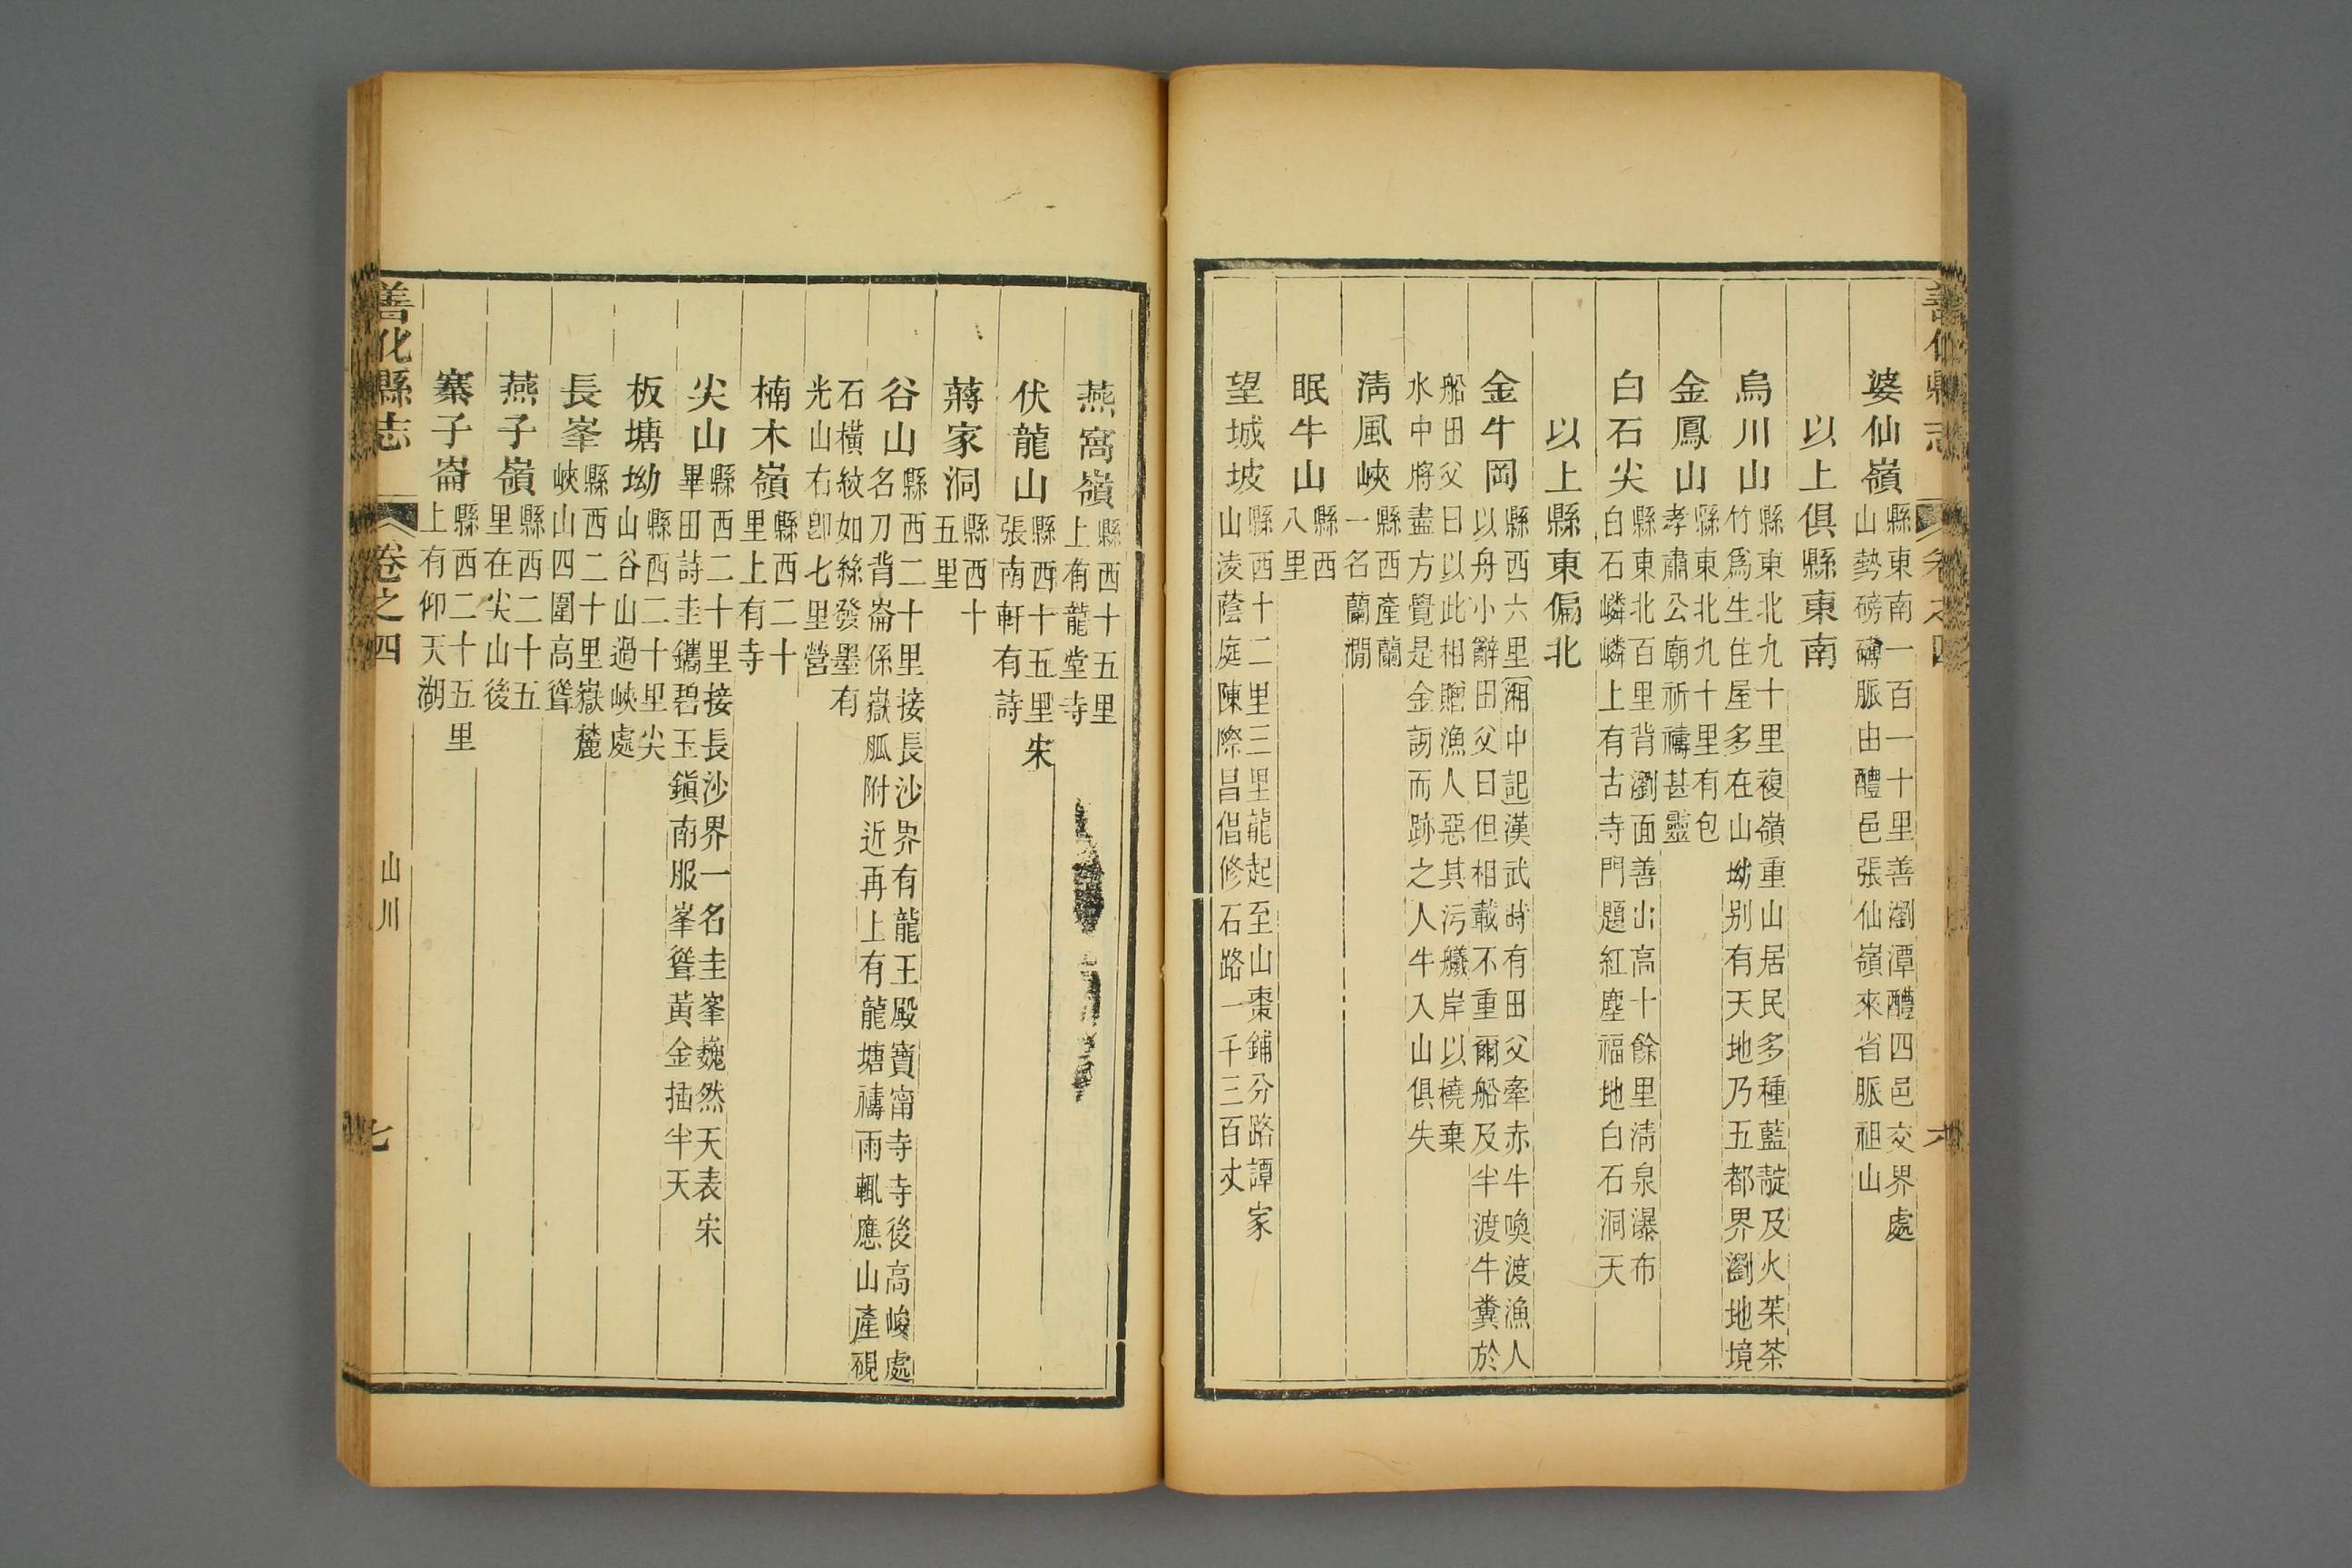 婆仙嶺縣東南一百一十里善瀏潭醴四邑交界處
山勢磅礴脈由醴邑張仙嶺來省脈祖山
以上俱縣東南
烏川山縣東北九十里複嶺重山居民多種藍靛及火茱茶
竹爲生住屋多在山坳别有天地乃五都界瀏地境
金鳳山縣東北九十里有包
孝肅公廟祈禱甚靈
白石尖縣東北百里背瀏面善山高十餘里淸泉瀑布
白石嶙嶙上有古寺門題紅塵福地白石洞天
以上縣東偏北
金牛岡縣西六里湘中記漢武時有田父牽赤牛喚渡漁人
以舟小辭田父曰但相載不重爾船及半渡牛糞於
船田父曰以此相贈漁人惡其污艤岸以橈棄
水中將盡方覺是金訝而跡之人牛入山俱失
淸風峽縣西產蘭
一名蘭澗
眠牛山縣西
八里
望城坡縣西十二里三里龍起至山棗鋪分路譚家
山淩蔭庭陳際昌倡修石路一千三百丈
燕窩嶺縣西十五里
上有龍堂寺
伏龍山縣西十五里宋
張南軒有詩
蔣家洞縣西十
五里
谷山縣西二十里接長沙界有龍王殿寶甯寺寺後高峻處
名刀背崙係嶽脈附近再上有龍塘禱雨輒應山產硯
石橫紋如絲發墨有
光山右卽七里營
楠木嶺縣西二十
里上有寺
尖山縣西二十里接長沙界一名圭峯巍然天表宋
畢田詩圭鑴碧玉鎭南服峯聳黃金插半天
板塘坳縣西二十里尖
山谷山過峽處
長峯縣西二十里嶽麓
峽山四圍高聳
燕子嶺縣西二十五
里在尖山後
寨子崙縣西二十五里
上有仰天湖
善化縣志
卷之四
山川
七